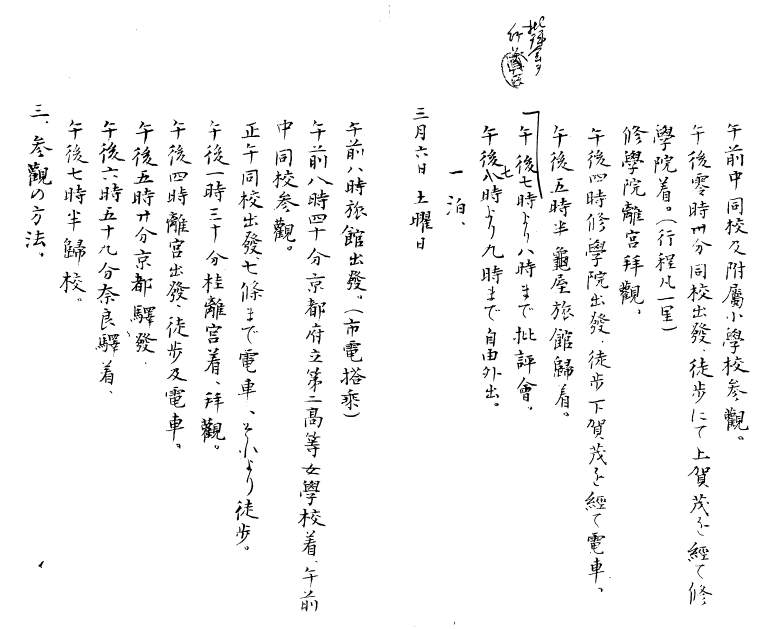 午前中同校及附屬小學校参觀。
午後零時卅分同校出發、徒歩にて上賀茂を經て修
學院着。(行程凡一里)
修學院離宮拜觀、
午後四時修學院出發、徒歩下賀茂を經て電車、
午後五時半龜屋旅館歸着。
午後七時より八時まで批評會。
午後八時より九時まで自由外出。
七
一泊、
三月六日 土曜日
午前八時旅館出發。(市電搭乘)
午前八時四十分京都府立第二高等女學校着、午前
中同校参觀。
正午同校出發七條まで電車、それより徒歩。
午後一時三十分桂離宮着、拜觀。
午後四時離宮出發、徒歩及電車。
午後五時廿分京都驛發、
午後六時五十九分奈良驛着、
午後七時半歸校。
三、参觀の方法、